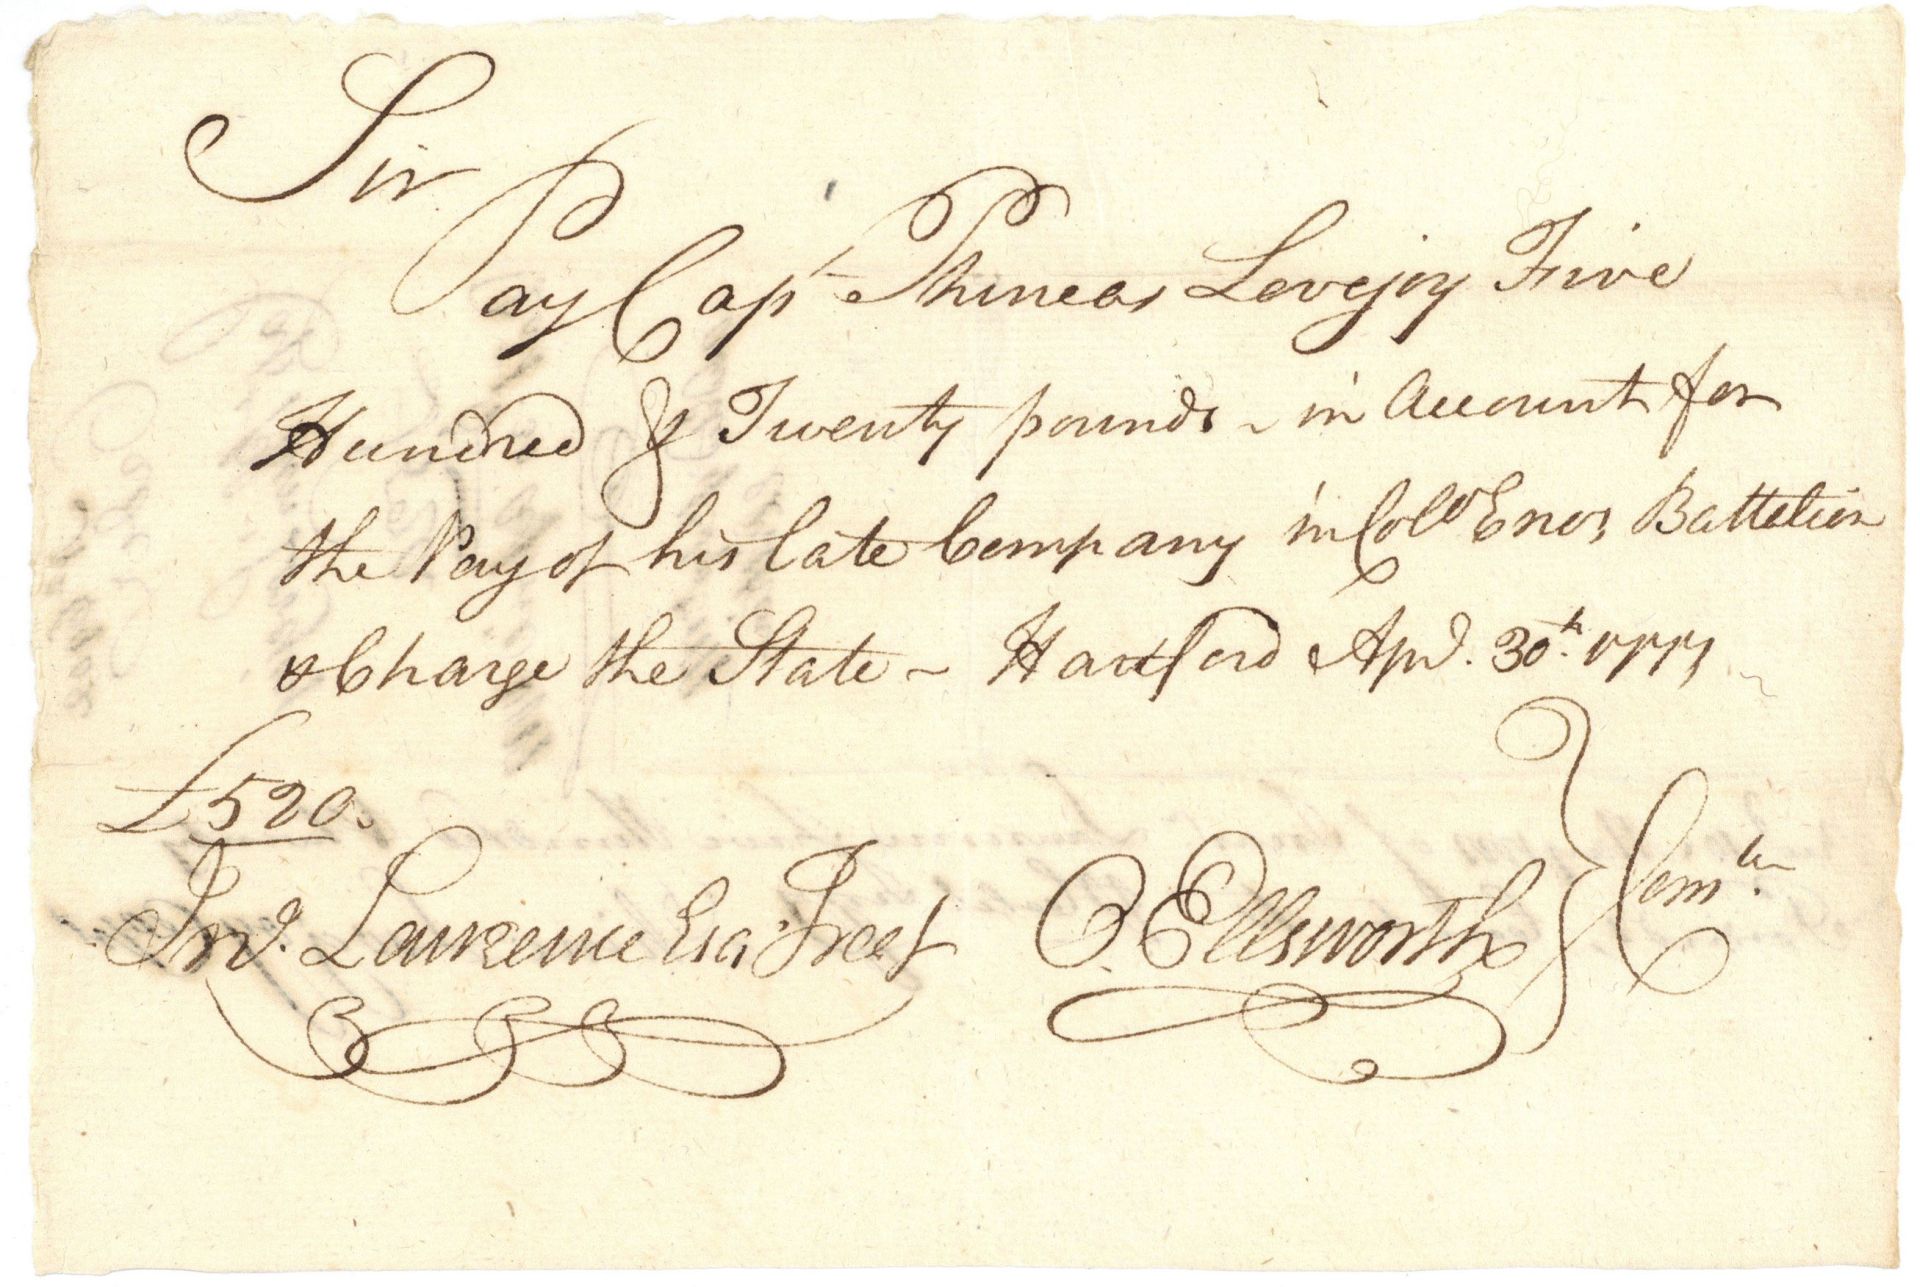 Sir
Pay Capt Phineas Lovejoy Five
Hundred & Twenty pounds - in Account for
the Pay of his late Company in Colo Enos Battelion
& Charge the State - Hartford Apl. 30th 1777
£520.
Jno. Laurence Esqr Treasr
O. Ellsworth } Comtee